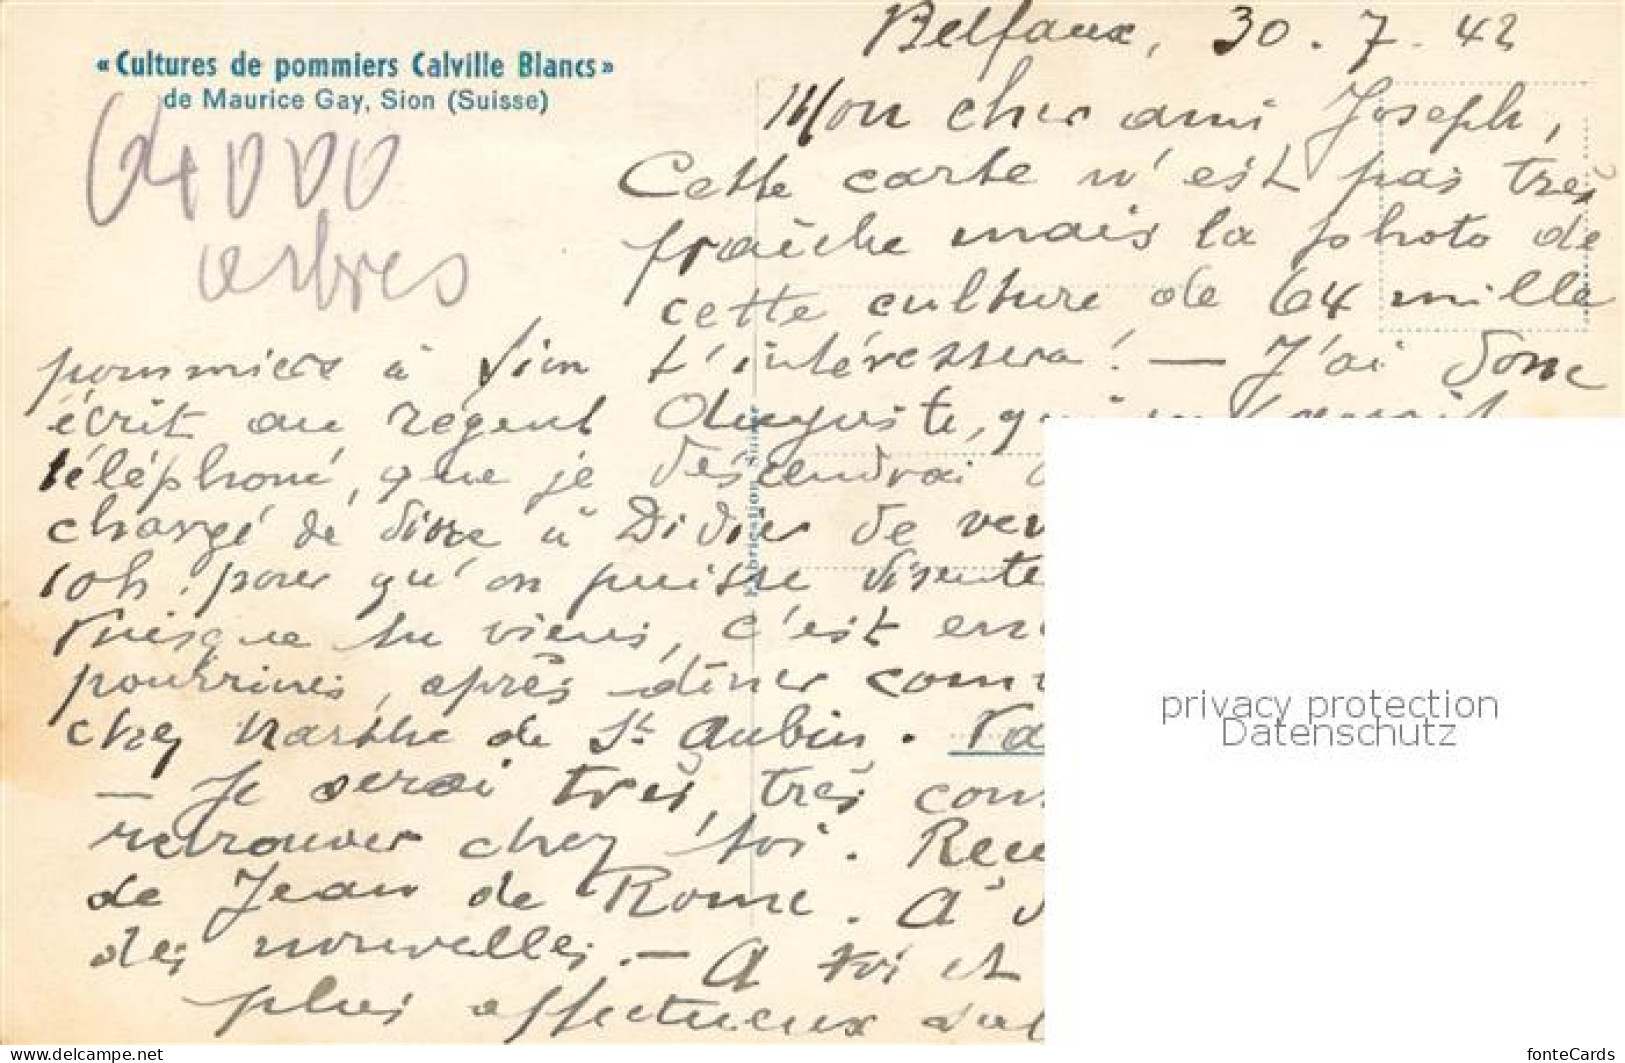 « Cultures de pommiers Calville Blancs »
de Maurice Gay, Sion (Suisse)
64000
arbres
Belfaux, 30. 7. 42
Mon cher ami Joseph,
Cette carte n'est pas très
fraîche mais la photo de
cette culture de 64 mille
pommiers à Sion t'intéressera! — J'ai donc
écrit au régent Auguste,
téléphoné, que je descendrai
chargé de dire à Didier de
10h. pour qu'on puisse
Puisque tu viens, c'est
pourrions, après dîner
chez Marthe de St. Aubin.
— Je serai très, très
retrouver chez toi.
de Jean de Rome. A
des nouvelles. — A toi et
plus affectueux
Fabrication Suisse
privacy protection
Datenschutz
www.delcampe.net
fonteCards